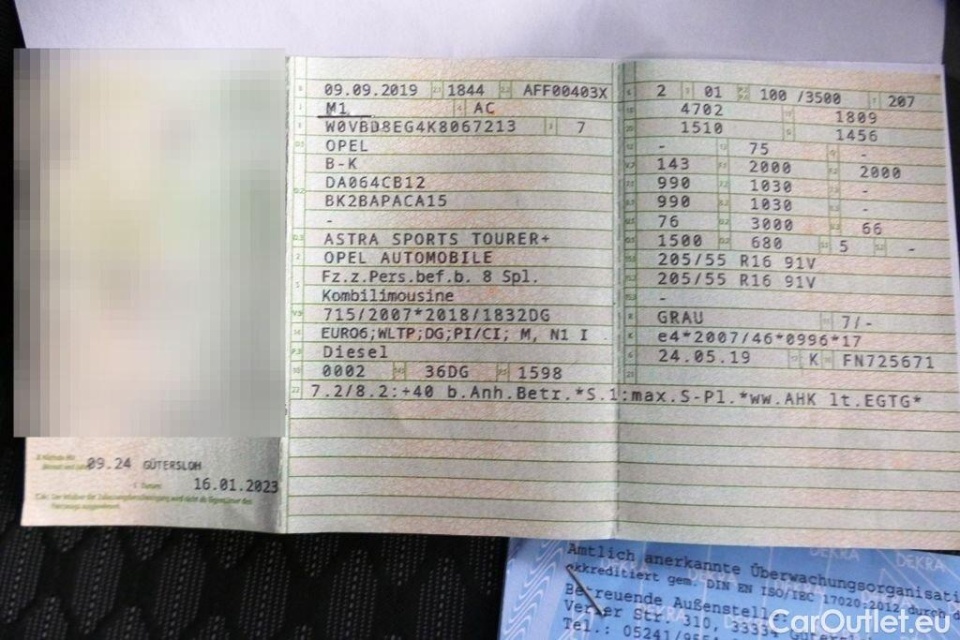 09.09.2019 1844 AFF00403X
M1 AC
W0VBD8EG4K8067213 7
OPEL
B-K
DA064CB12
BK2BAPACA15
-
ASTRA SPORTS TOURER+
OPEL AUTOMOBILE
Fz.z.Pers.bef.b. 8 Spl.
Kombilimousine
715/2007*2018/1832DG
EURO6;WLTP;DG;PI/CI; M, N1 I
Diesel
0002 36DG 1598
7.2/8.2:+40 b.Anh.Betr.*S.1:max.S-Pl.*ww.AHK lt.EGTG*
2 01 100 /3500 207
4702 1809
1510 1456
- 75 -
143 2000 2000
990 1030 -
990 1030 -
76 3000 66
1500 680 5 -
205/55 R16 91V
205/55 R16 91V
-
GRAU 7/-
e4*2007/46*0996*17
24.05.19 K FN725671
09.24 GÜTERSLOH
16.01.2023
DEKRA DEKRA
Amtlich anerkannte Überwachungsorganisati
akkreditiert gem. DIN EN ISO/IEC 17020:2012 durch
Betreuende Außenstell
Verler Str. 310, 3333
Tel.: 05241/955
CarOutlet.eu